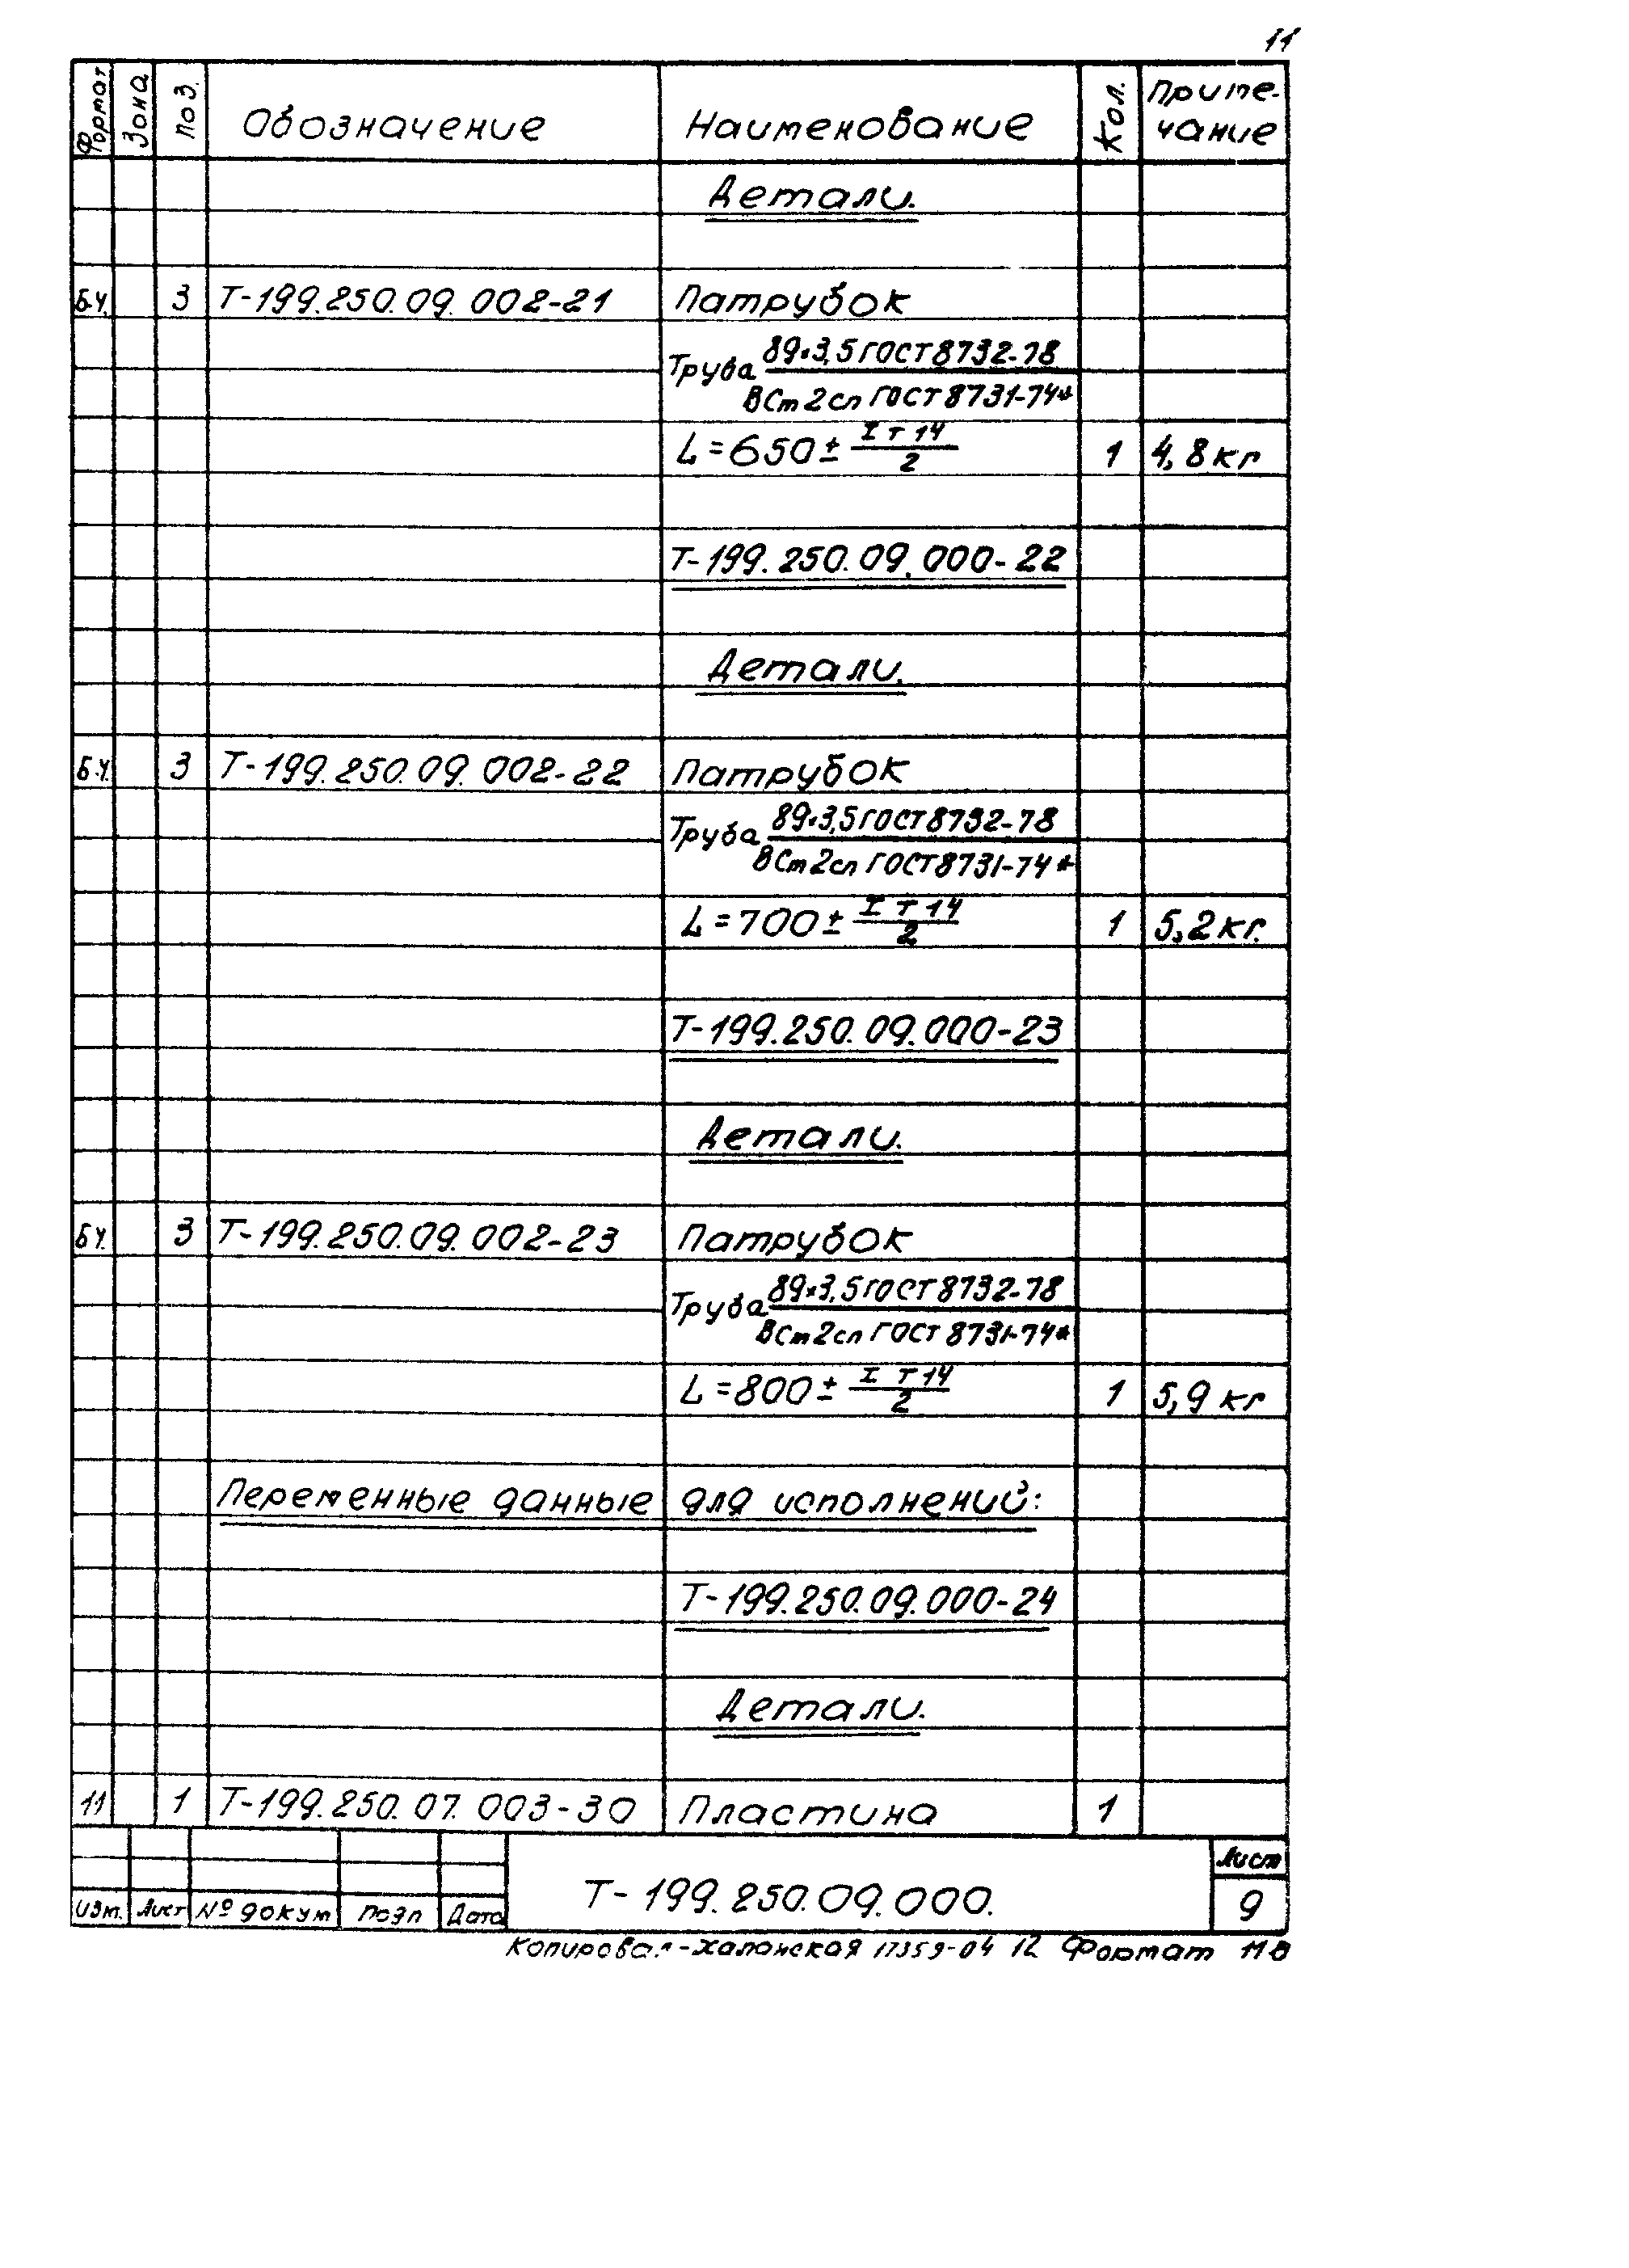 11
Формат Зона Поз. Обозначение Наименование Кол. Приме-
чание
Детали.
Б.Ч. 3 Т-199.250.09.002-21 Патрубок
Труба 89×3,5 ГОСТ 8732-78
ВСт2сп ГОСТ 8731-74*
L=650± IT14
2 1 4,8 кг
Т-199.250.09.000-22
Детали.
Б.Ч. 3 Т-199.250.09.002-22 Патрубок
Труба 89×3,5 ГОСТ 8732-78
ВСт2сп ГОСТ 8731-74*
L=700± IT14
2 1 5,2 кг.
Т-199.250.09.000-23
Детали.
БЧ. 3 Т-199.250.09.002-23 Патрубок
Труба 89×3,5 ГОСТ 8732-78
ВСт2сп ГОСТ 8731-74*
L=800± IT14
2 1 5,9 кг
Переменные данные для исполнений:
Т-199.250.09.000-24
Детали.
11 1 Т-199.250.07.003-30 Пластина 1
Изм. Лист № докум Подп Дата Т-199.250.09.000. Лист
9
Копировал- 17359-04 12 Формат 11В